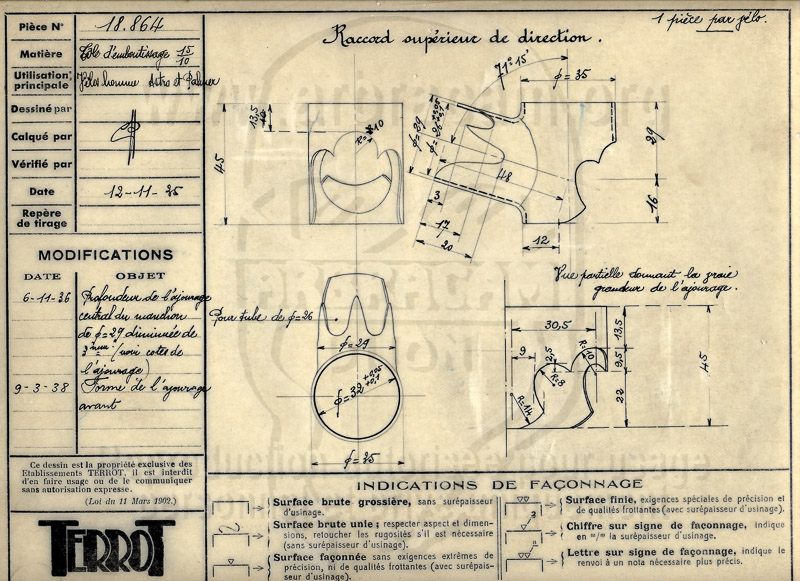 Pièce N° 18.864
Matière Tôle d'emboutissage 15/10
Utilisation principale Vélos homme Astro et Palmer
Dessiné par
Calqué par
Vérifié par
Date 12-11-35
Repère de tirage
MODIFICATIONS
DATE OBJET
6-11-36 Profondeur de l'ajourage
central du manchon
de φ=29 diminuée de
3 mm (voir cotes de
l'ajourage)
9-3-38 Forme de l'ajourage
avant
Ce dessin est la propriété exclusive des
Etablissements TERROT, il est interdit
d'en faire usage ou de le communiquer
sans autorisation expresse.
(Loi du 11 Mars 1902.)
TERROT
Raccord supérieur de direction.
1 pièce par vélo.
71° 15'
φ=35
13,5
45
R=10
φ=29
48
29
16
3
17
20
12
Pour tube de φ=26
φ=29
φ=32 +0,05 +0,1
φ=35
Vue partielle donnant la vraie
grandeur de l'ajourage.
30,5
9
12,5
R=10
R=8
R=14
13,5
9,5
22
45
INDICATIONS DE FAÇONNAGE
Surface brute grossière, sans surépaisseur
d'usinage.
Surface brute unie; respecter aspect et dimen-
sions, retoucher les rugosités s'il est nécessaire
(sans surépaisseur d'usinage).
Surface façonnée sans exigences extrêmes de
précision, ni de qualités frottantes (avec surépais-
seur d'usinage).
Surface finie, exigences spéciales de précision et
de qualités frottantes (avec surépaisseur d'usinage).
Chiffre sur signe de façonnage, indique
en m/m la surépaisseur d'usinage.
Lettre sur signe de façonnage, indique le
renvoi à un nota nécessaire plus précis.